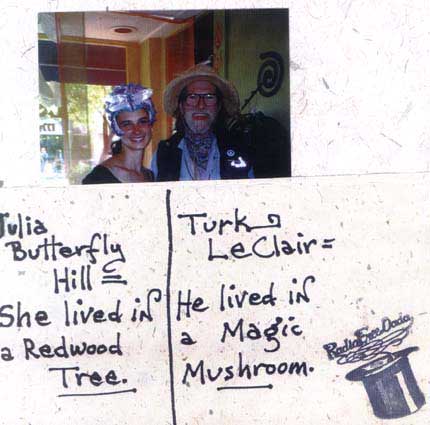 Julia
Butterfly
Hill =
She lived in
a Redwood
Tree.
Turk
LeClair =
He lived in
a Magic
Mushroom.
Radio Free Dada